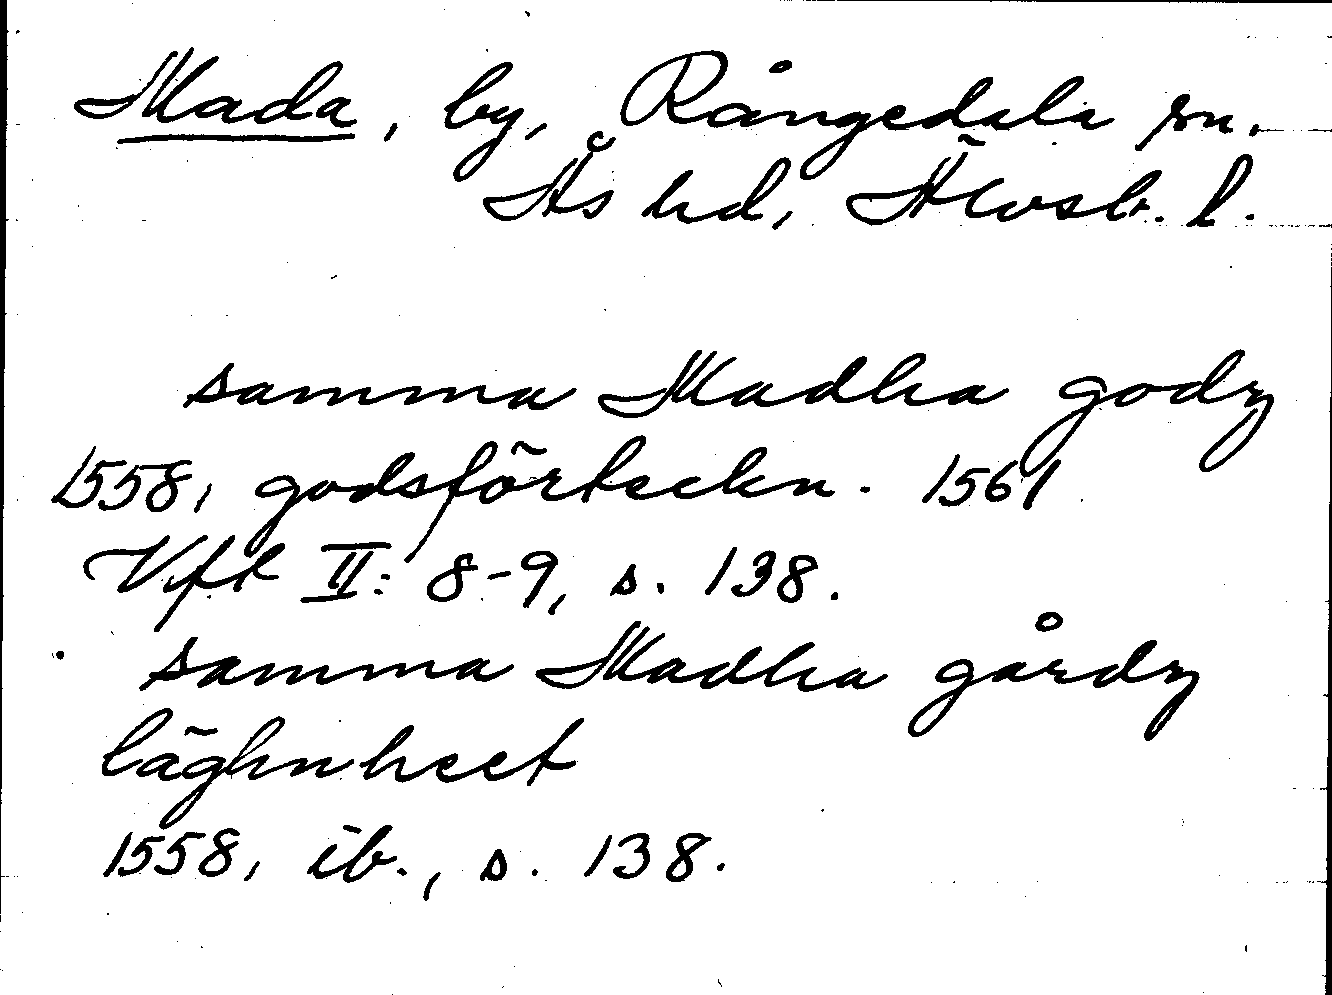 Mada, by, Rångedala sn.
Ås hd, Älvsb. l.
samma Madha godz
1558, godsförteckn. 1561
Vft II: 8-9, s. 138.
samma Madha gårdz
läghnheet
1558, ib., s. 138.